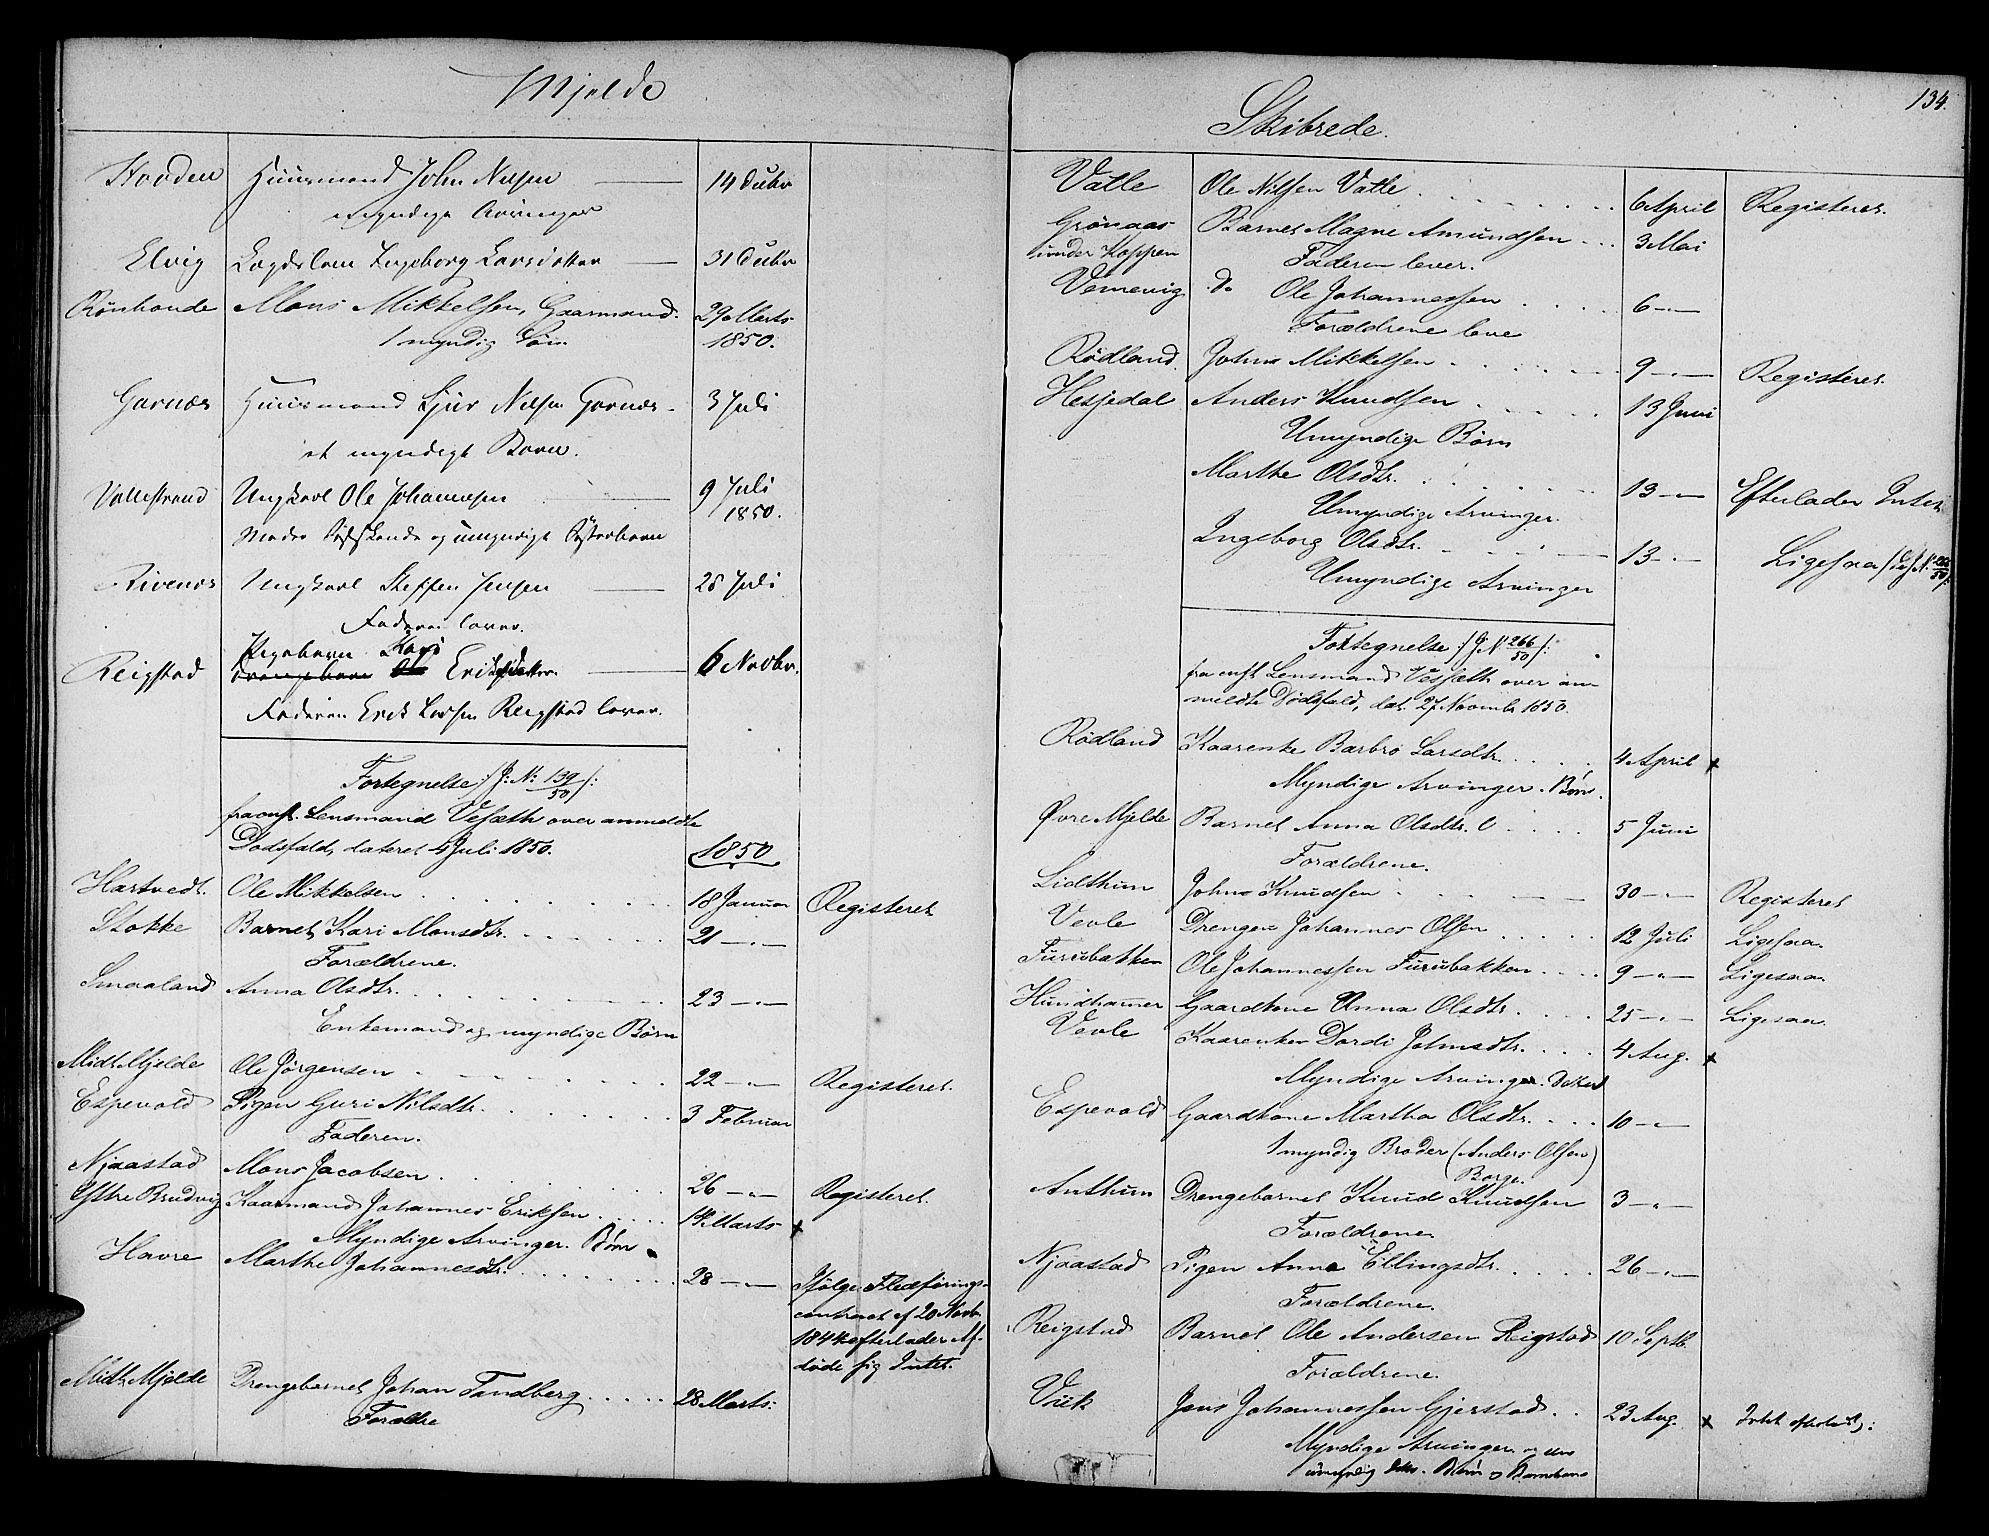 Mjelde
Hovden Huusmand John Nilsen 14 Decbr
myndige Arvinger
Elvig Lægdslem Ingeborg Larsdatter 31 Decbr
Rønhovde Mons Mikkelsen, Gaarmand. 29 Marts
1 myndig Søn. 1850.
Garnæs Huusmand Sjur Nilsen Garnæs 3 Juli
et myndigt Barn.
Vallestrand Ungkarl Ole Johannesen 9 Juli
1850.
Moder Sødskende og umyndige Søsterbørn
Rivenæs Ungkarl Steffen Jensen 28 Juli
Faderen lever.
Pigebarn Kari
Reigstad Drengebarn Ole Eriksdatter. 6 Novbr.
Faderen Erik Larsen Reigstad lever.
Fortegnelse /: J: No: 139/50 /:
fra const. Lensmand Vesæth over anmeldte
Dødsfald, dateret 4 Juli 1850. 1850
Hartvedt. Ole Mikkelsen 18 Januar Registeret
Stokke Barnet Kari Monsdtr. 21 —"—
Forældrene.
Smaaland Anna Olsdtr. 23 —"—
Enkemand og myndige Børn
Midt Mjelde Ole Jørgensen 22 —"— Registeret.
Espevold Pigen Guri Nilsdtr. 3 Februar
Faderen.
Njaastad Mons Jacobsen 26 —"— Registeret.
Østre Brudvig Kaarmand Johannes Eriksen 14 Marts x
Myndige Arvinger. Børn
Havre Marthe Johannesdtr. 28 —"— Ifølge Fledførings-
contract af 20 Novb.
1844 efterlader Af-
døde sig Intet.
Midt Mjelde Drengebarnet Johan Tandberg 28 Marts:
Forældre
134.
Skibrede.
Vatle Ole Nilsen Vatle 6 April Registeret.
Grönaas Barnet Magne Amundsen 3 Mai
under Koppen Faderen lever.
Vemevig Do Ole Johannessen 6 —"—
Forældrene leve
Rödland. Johns Mikkelsen 9 —"— Registeret
Hesjedal Anders Knudsen 13 Juni
Umyndige Børn
Marthe Olsdtr. 13 —"— Efterlader Intet
Umyndige Arvinger.
Ingeborg Olsdtr. 13 —"— Ligesaa
Umyndige Arvinger
Fortegnelse /: J. No 266/50 /:
fra const. Lensmand Vesæth over an-
meldte Dödsfald, dat. 27 Novembr 1850.
Rödland Kaarenke Barbro Larsdtr. 4 April x
Myndige Arvinger. Børn.
Øvre Mjelde Barnet Anna Olsdtr. 5 Juni
Forældrene.
Lidthun Johns Knudsen 30 —"— Registeret
Vevle Drengen Johannes Olsen 12 Juli Ligesaa.
Furubakken Ole Johannessen Furubakken 9 —"— Ligesaa.
Hundhamer Gaardkone Anna Olsdtr. 25 —"— Ligesaa.
Vevle Kaarenken Dordi Johnsdtr. 4 Aug. x
Myndige Arvinger.
Espevold Gaardkone Martha Olsdtr. 10 —"—
1 myndig Broder (Anders Olsen)
Borge.
Anthun Drengebarnet Knud Knudsen 3 —"—
Forældrene.
Njaastad Pigen Anna Ellingsdtr. 26 —"—
Forældrene.
Reigstad Barnet Ole Andersen Reigstad 10 Septb.
Forældrene.
Viik Jens Johannessen Gjerstad 23 Aug. x Intet
Myndige Arvinger
umyndig Børn